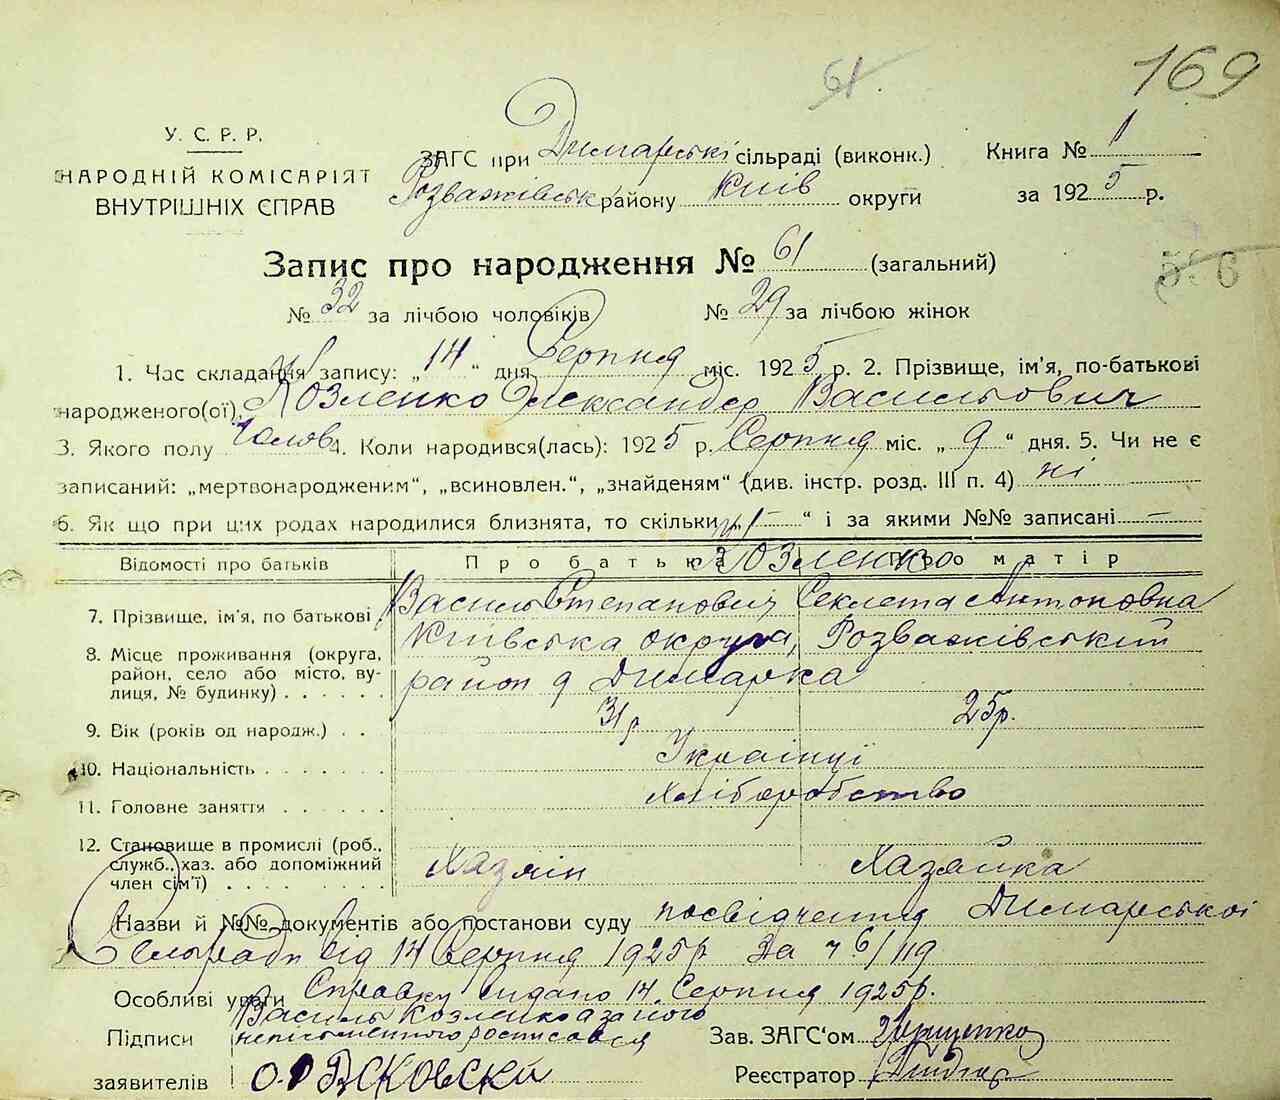 169
61
У. С. Р. Р.
НАРОДНІЙ КОМІСАРІЯТ
ВНУТРІШНІХ СПРАВ
ЗАГС при Димарські сільраді (виконк.)
Розважівськ району Київ округи
Книга № 1
за 1925 р.
Запис про народження № 61 (загальний)
№ 32 за лічбою чоловіків № 29 за лічбою жінок
1. Час складання запису: „14“ дня Серпня міс. 1925 р. 2. Прізвище, ім'я, по-батькові
народженого(ої), Козленко Олександер Васильович
3. Якого полу Чолов 4. Коли народився(лась): 1925 р. Серпня міс. „9“ дня. 5. Чи не є
записаний: „мертвонародженим“, „всиновлен.“, „знайденям“ (див. інстр. розд. III п. 4) ні
6. Як що при цих родах народилися близнята, то скільки „—“ і за якими №№ записані —
Відомості про батьків Про батька Про матір
Козленко
7. Прізвище, ім'я, по батькові Василь Степанович Секлета Антоновна
8. Місце проживання (округа, район, село або місто, вулиця, № будинку) Київська округа, Розважівський
район д Димарка
9. Вік (років од народж.) 31р 25р.
10. Національність Українці
11. Головне заняття Хліборобство
12. Становище в промислі (роб., служб., хаз. або допоміжний член сім'ї) Хазяїн Хазяйка
Назви й №№ документів або постанови суду посвідчення Димарської
Сільради від 14 Серпня 1925р За ч 6/119
Особливі уваги Справку видано 14 Серпня 1925р.
Василь Козленко а за його
Підписи неписьменного росписався
Зав. ЗАГС'ом
заявителів
Реєстратор